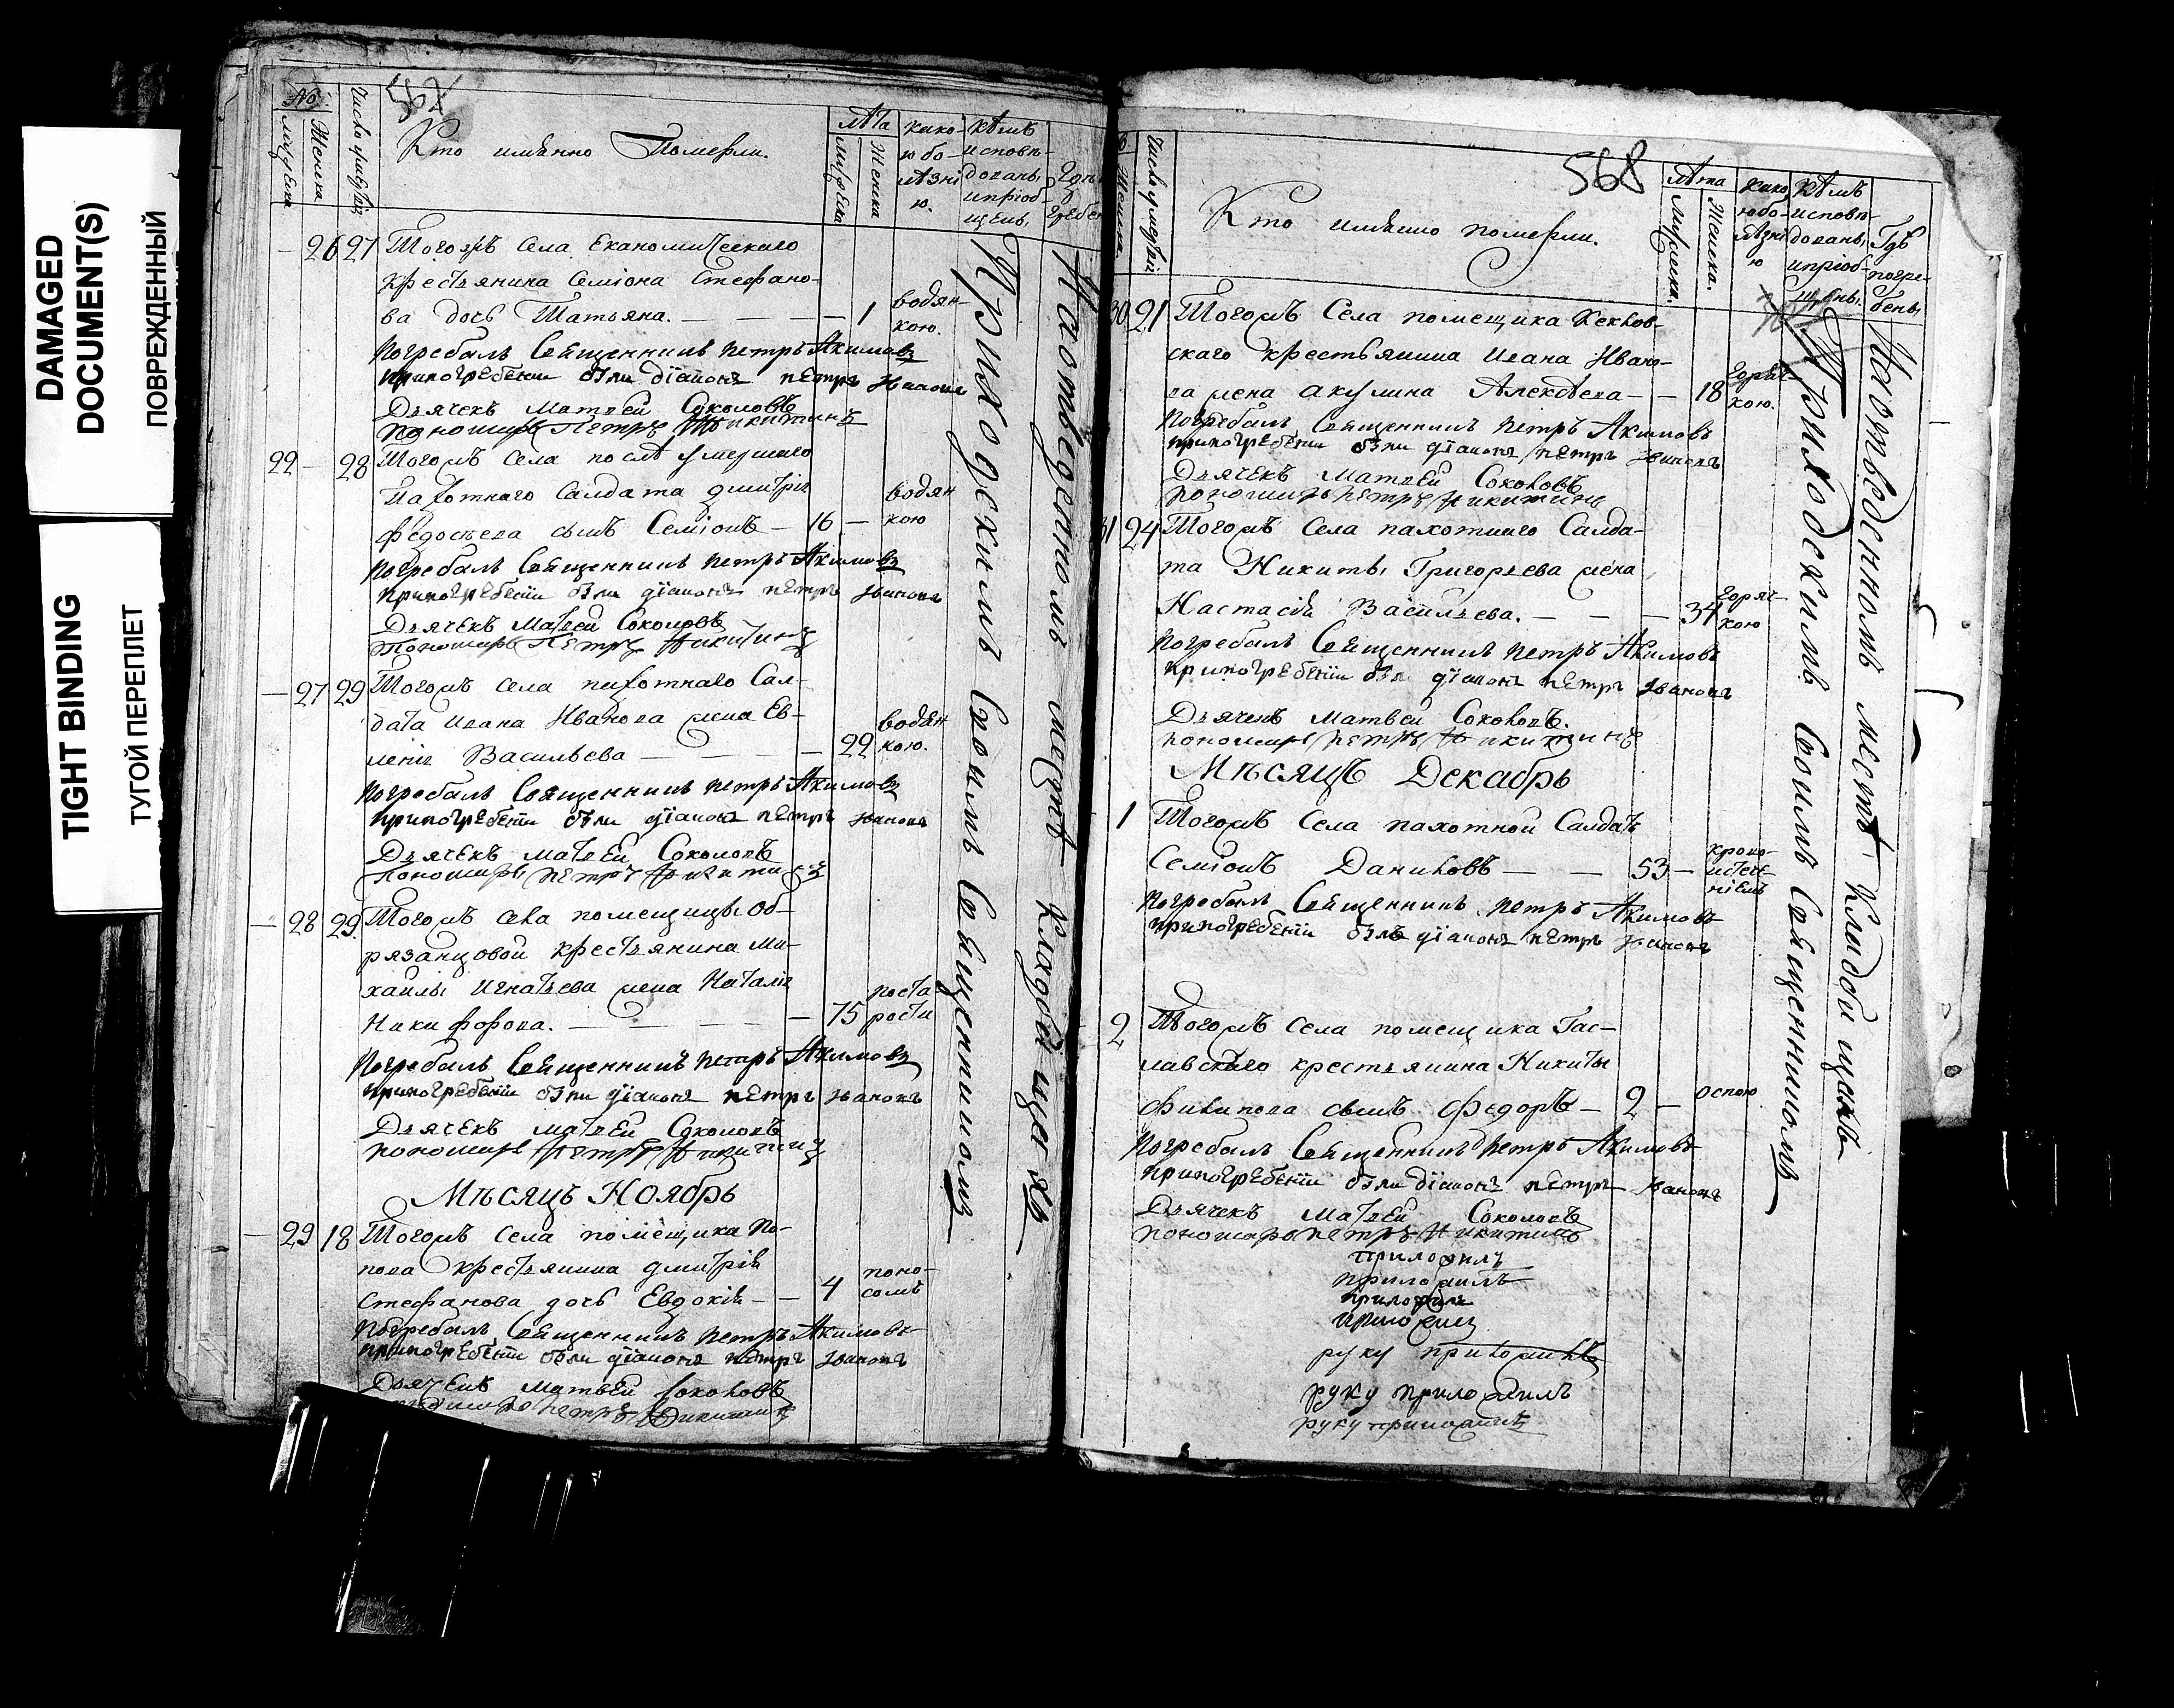 DAMAGED
DOCUMENT(S)
ПОВРЕЖДЕННЫЙ
TIGHT BINDING
ТУГОЙ ПЕРЕПЛЕТ
567
№
Мужеска
Женска
Число
Кто имѣнно Померли.
лѣта
Мужеска
Женска
како-
ю бо-
лѣзні
ю.
кѣмъ
исповѣ-
дованы
ипріоб-
щены,
26 27 Тогожъ села Економическаго
крестьянина Семіона Стефано-
ва дочь Татьяна. — — — 1 водян-
кою.
Погребалъ Священникъ петръ Акимовъ
припогребении были діаконъ петръ Ивановъ
Дьячекъ Матвей Соколовъ
пономарь Петръ Никитинъ
22 — 28 Тогожъ села послѣ умершаго
пахотнаго Салдата дмитрія
федосьева сынъ Семіонъ — 16 — водян
кою
Погребалъ Священникъ петръ Акимовъ
Припогребении были діаконъ петръ Ивановъ
Дьячекъ Матвей Соколовъ
Пономарь Петръ Никитинъ
— 27 29 Тогожъ села пахотнаго Сал-
дата ивана Иванова жена Ев-
Васильева — — — 22 водян
кою.
Погребалъ Священникъ петръ Акимовъ
припогребении были діаконъ петръ Ивановъ
Дьячекъ Матвей Соколовъ
Пономарь петръ Никитинъ
— 28 29 Тогожъ села помещицы Об-
рязанцовой крестьянина ми-
хаилы Игнатьева жена Наталія
Никифорова. — — — 75 поста-
рости
Погребалъ Священникъ петръ Акимовъ
припогребении были діаконъ петръ Ивановъ
Дьячекъ Матвей Соколовъ
пономарь петръ Никитинъ
Мѣсяцъ Ноябрь
— 29 18 Тогожъ села помещика По-
пова крестьянина дмитрія
Стефанова дочь Евдокія — — 4 поно-
сомъ
Погребалъ Священникъ петръ Акимовъ
припогребении были діаконъ петръ Ивановъ
Дьячекъ Матвей Соколовъ
петръ Никитинъ
Приходскимъ Своимъ Священникомъ
На отведенномъ местѣ Кладбищахъ
568
Кто имѣнно померли.
лѣта
Мужеска.
Женска.
како
ю бо-
лѣзні
ю
кѣмъ
исповѣ-
дованы,
ипріоб-
щены.
Гдѣ
погре-
бены
30 21 Тогожъ Села помещика
скаго крестьянина ивана Ивано-
ва жена акулина Алексѣева — — 18 горяч-
кою.
Погребалъ Священникъ Петръ Акимовъ
припогребении были діаконъ петръ Ивановъ
Дьячекъ Матвей Соколовъ
пономарь петръ Никитинъ
31 24 Тогожъ Села пахотнаго Салда-
та Никиты Григорьева жена
Настасія Васильева. — — — 34 горяч-
кою
Погребалъ Священникъ петръ Акимовъ
припогребении были діаконъ петръ Ивановъ
Дьячекъ Матвей Соколовъ.
пономарь петръ Никитинъ
Мѣсяцъ Декабрь
1 Тогожъ Села пахотной Салдатъ
Семіонъ Даниловъ — — 53 — крово-
теч-
ніемъ
Погребалъ Священникъ петръ Акимовъ
припогребении былъ діаконъ петръ Ивановъ
2 Тогожъ Села помещика Гас-
лавскаго крестьянина Никиты
Филипова сынъ Федоръ — 2 — оспою
Погребалъ Священникъ Петръ Акимовъ
припогребении были діаконъ петръ Ивановъ
Дьячекъ Матвей Соколовъ
пономарь петръ Никитинъ
приложилъ
приложилъ
приложилъ
приложилъ
руку приложилъ
руку приложилъ
руку приложилъ
Приходскимъ Своимъ Священникомъ
На отведенномъ местѣ Кладбищахъ